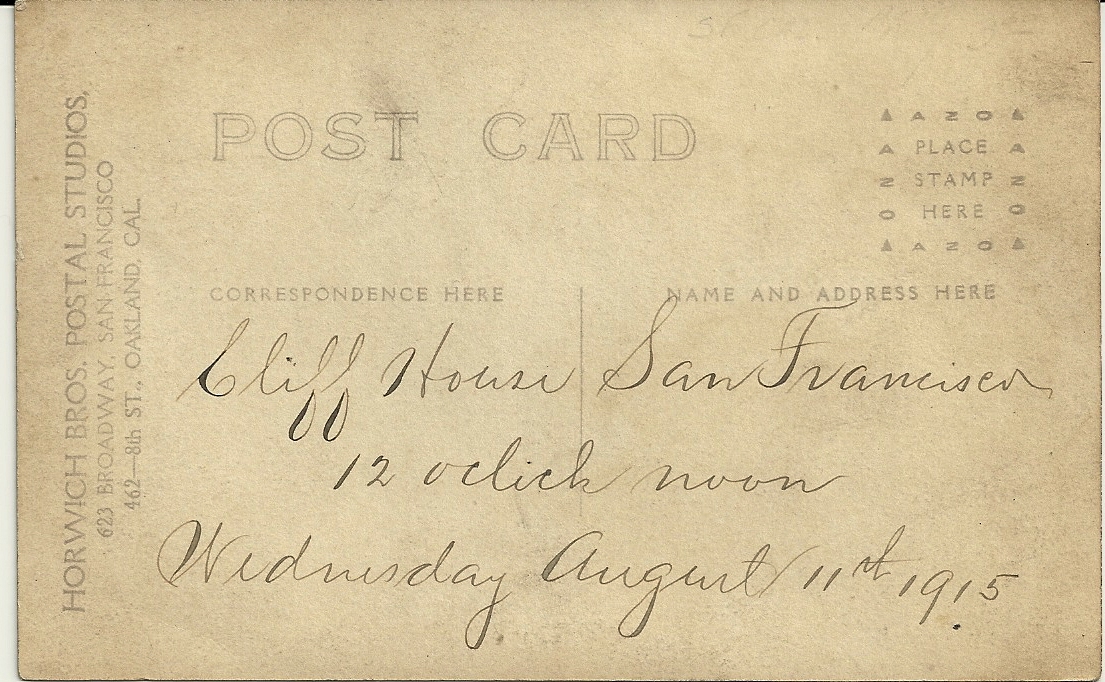 HORWICH BROS. POSTAL STUDIOS,
623 BROADWAY, SAN FRANCISCO
462—8th ST., OAKLAND, CAL.
POST CARD
▲ A Z O ▲
A PLACE A
Z STAMP Z
O HERE O
▲ A Z O ▲
CORRESPONDENCE HERE
NAME AND ADDRESS HERE
Cliff House San Francisco
12 oclick noon
Wednesday August 11th 1915